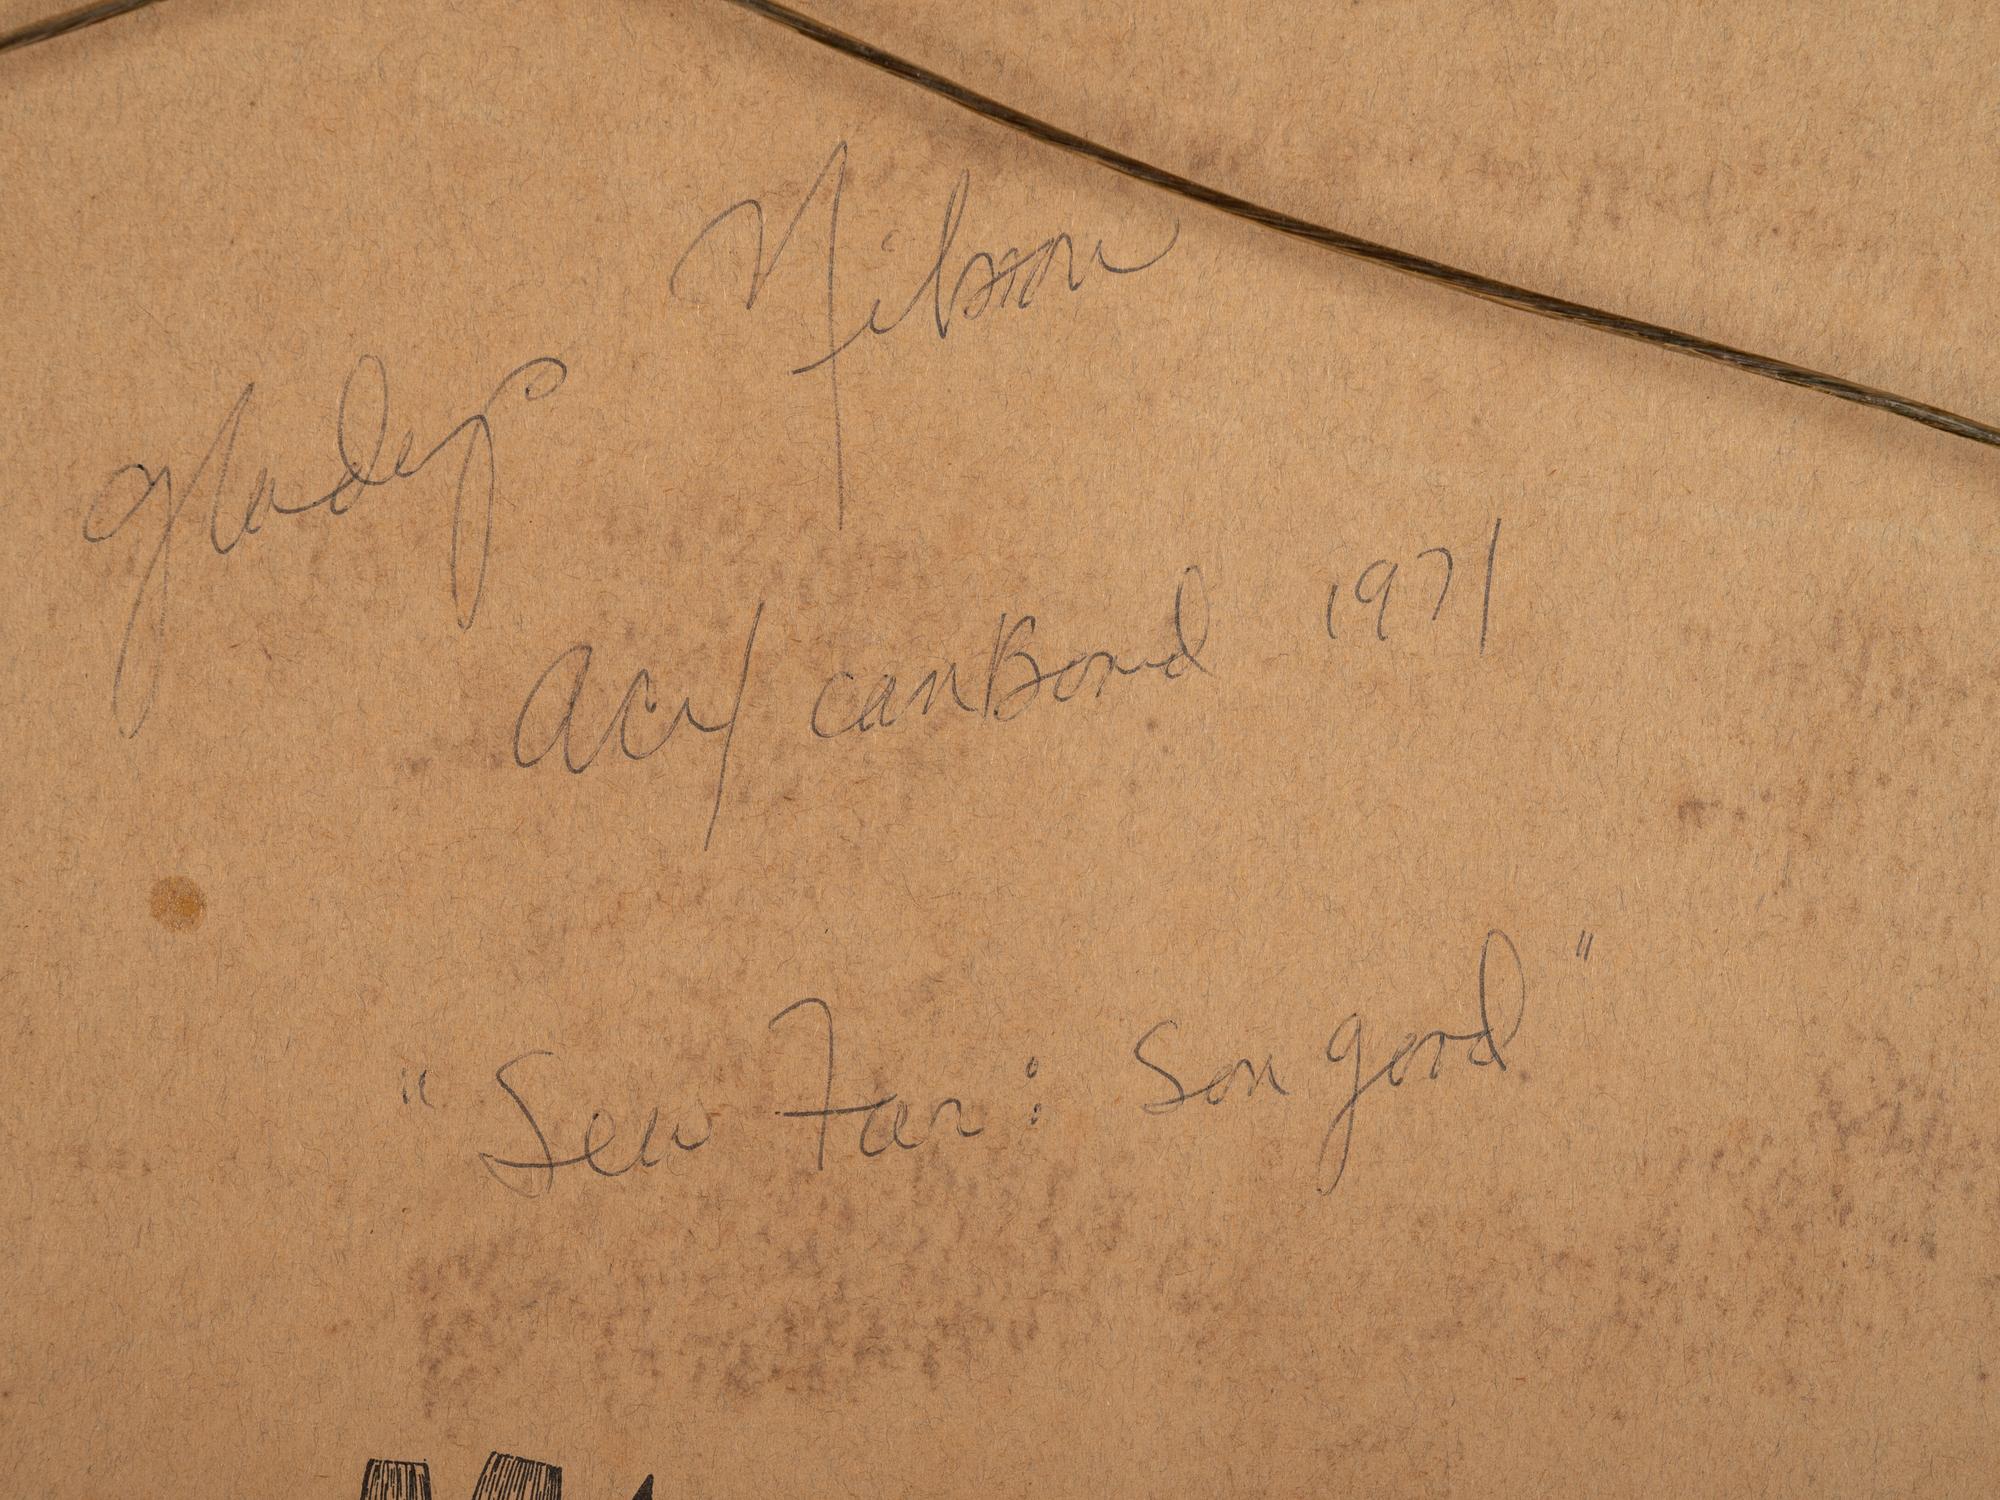 Gladys Nilsson
Acry/canBoard 1971
"Sew Far: Son good"